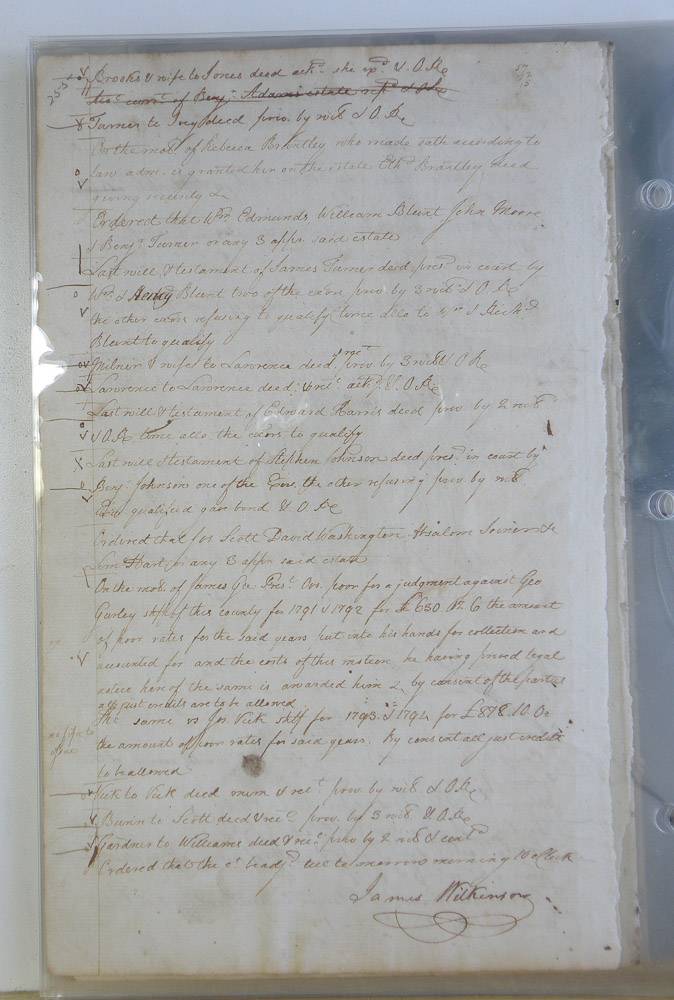 Brooks & wife to Jones deed ackd. she exd. & O.R.
Turner to Ivey deed prov. by wits & O.R.
On the mot. of Rebecca Brantley who made oath according to
law adm. is granted her on the estate Ethd. Brantley deced
giving security &
Ordered that Wm. Edmunds William Blunt John Moore
& Benj. Turner or any 3 appr. said estate
Last will & testament of James Turner deced presd. in court by
Wm. & Henry Blunt two of the exors prov. by 3 wits & O.R.
the other exors refusing to qualify time allo to
Blunt to qualify
Milner & wife to Lawrence deed prov by 3 wits & O.R.
Lawrence to Lawrence deed & rect. ackd. & O.R.
Last will & testament of Edward Harris deced prov by 2 wits
& O.R. time allo. the exors to qualify
Last will & testament of Stephen Johnson deced presd. in court by
Benj. Johnson one of the Exrs. the other refusing prov by wits
qualified gave bond & O.R.
Ordered that Jos Scott David Washington Absalom Joiner &
Hart or any 3 appr said estate
On the mot. of James Gee Prest. Ovs. poor for a judgment against Geo
Gurley shff of this county for 1791 & 1792 for £650 12. 6 the amount
of poor rates for the said years put into his hands for collection and
accounted for and the costs of this motion, he having proved legal
notice hereof the same is awarded him & by consent of the parties
all just credits are to be allowed
The same vs Jos. Vick shff for 1793. & 1794 for £878.10.0
the amount of poor rates for said years. By consent all just credits
to be allowed
Vick to Vick deed mem & rect. prov by wits & O.R.
Bunn to Scott deed & rect. prov. by 3 wits & O.R.
Gardner to Williams deed & rect. prov by 2 wits & contd.
Ordered that the ct. be adjd. till to morrow morning 10 oClock
James Wilkinson